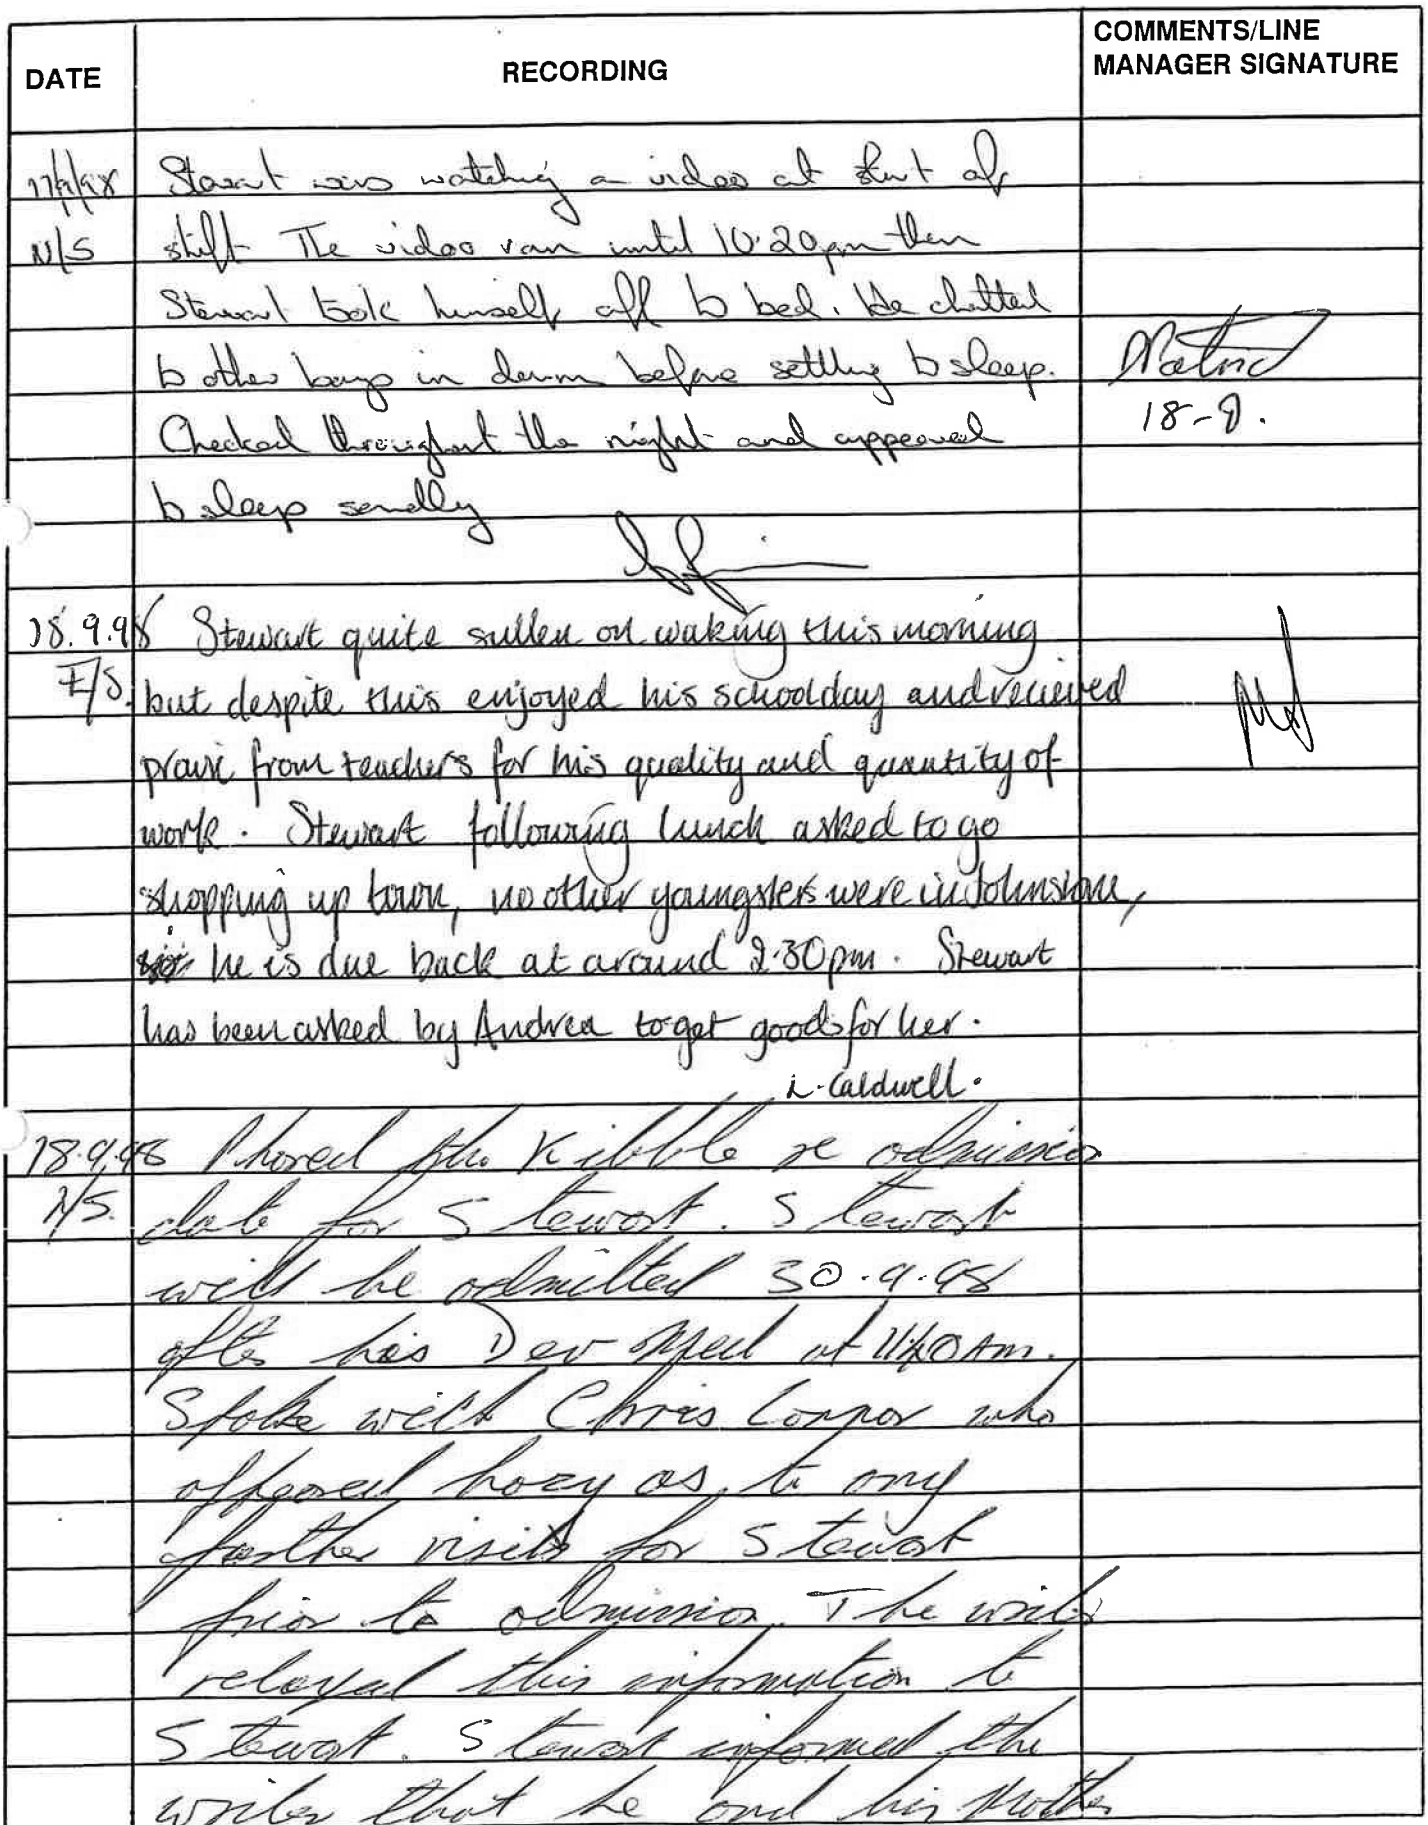 DATE RECORDING COMMENTS/LINE MANAGER SIGNATURE
17/9/98 Stewart was watching a video at start of
N/S shift. The video ran until 10.20pm then
Stewart took himself off to bed. He chatted
to other boys in dorm before settling to sleep.
Checked throughout the night and appeared 18-9.
to sleep soundly
18.9.98 Stewart quite sullen on waking this morning
E/S. but despite this enjoyed his schoolday and recieved
praise from teachers for his quality and quantity of
work. Stewart following lunch asked to go
shopping up town, no other youngsters were in Johnstone,
he is due back at around 2.30pm. Stewart
has been asked by Andrea to get goods for her.
L. Caldwell.
18.9.98 Phoned the Kibble re admission
date for Stewart. Stewart
will be admitted 30.9.98
after his Dev Med at Am.
Spoke with Chris Connor who
appeared hazy as to any
further visits for Stewart
prior to admission. The writer
relayed this information to
Stewart. Stewart informed the
writer that he and his Mother